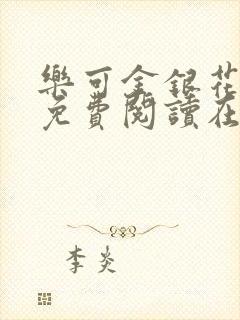 樂可金銀花
免費閱讀在
李炎